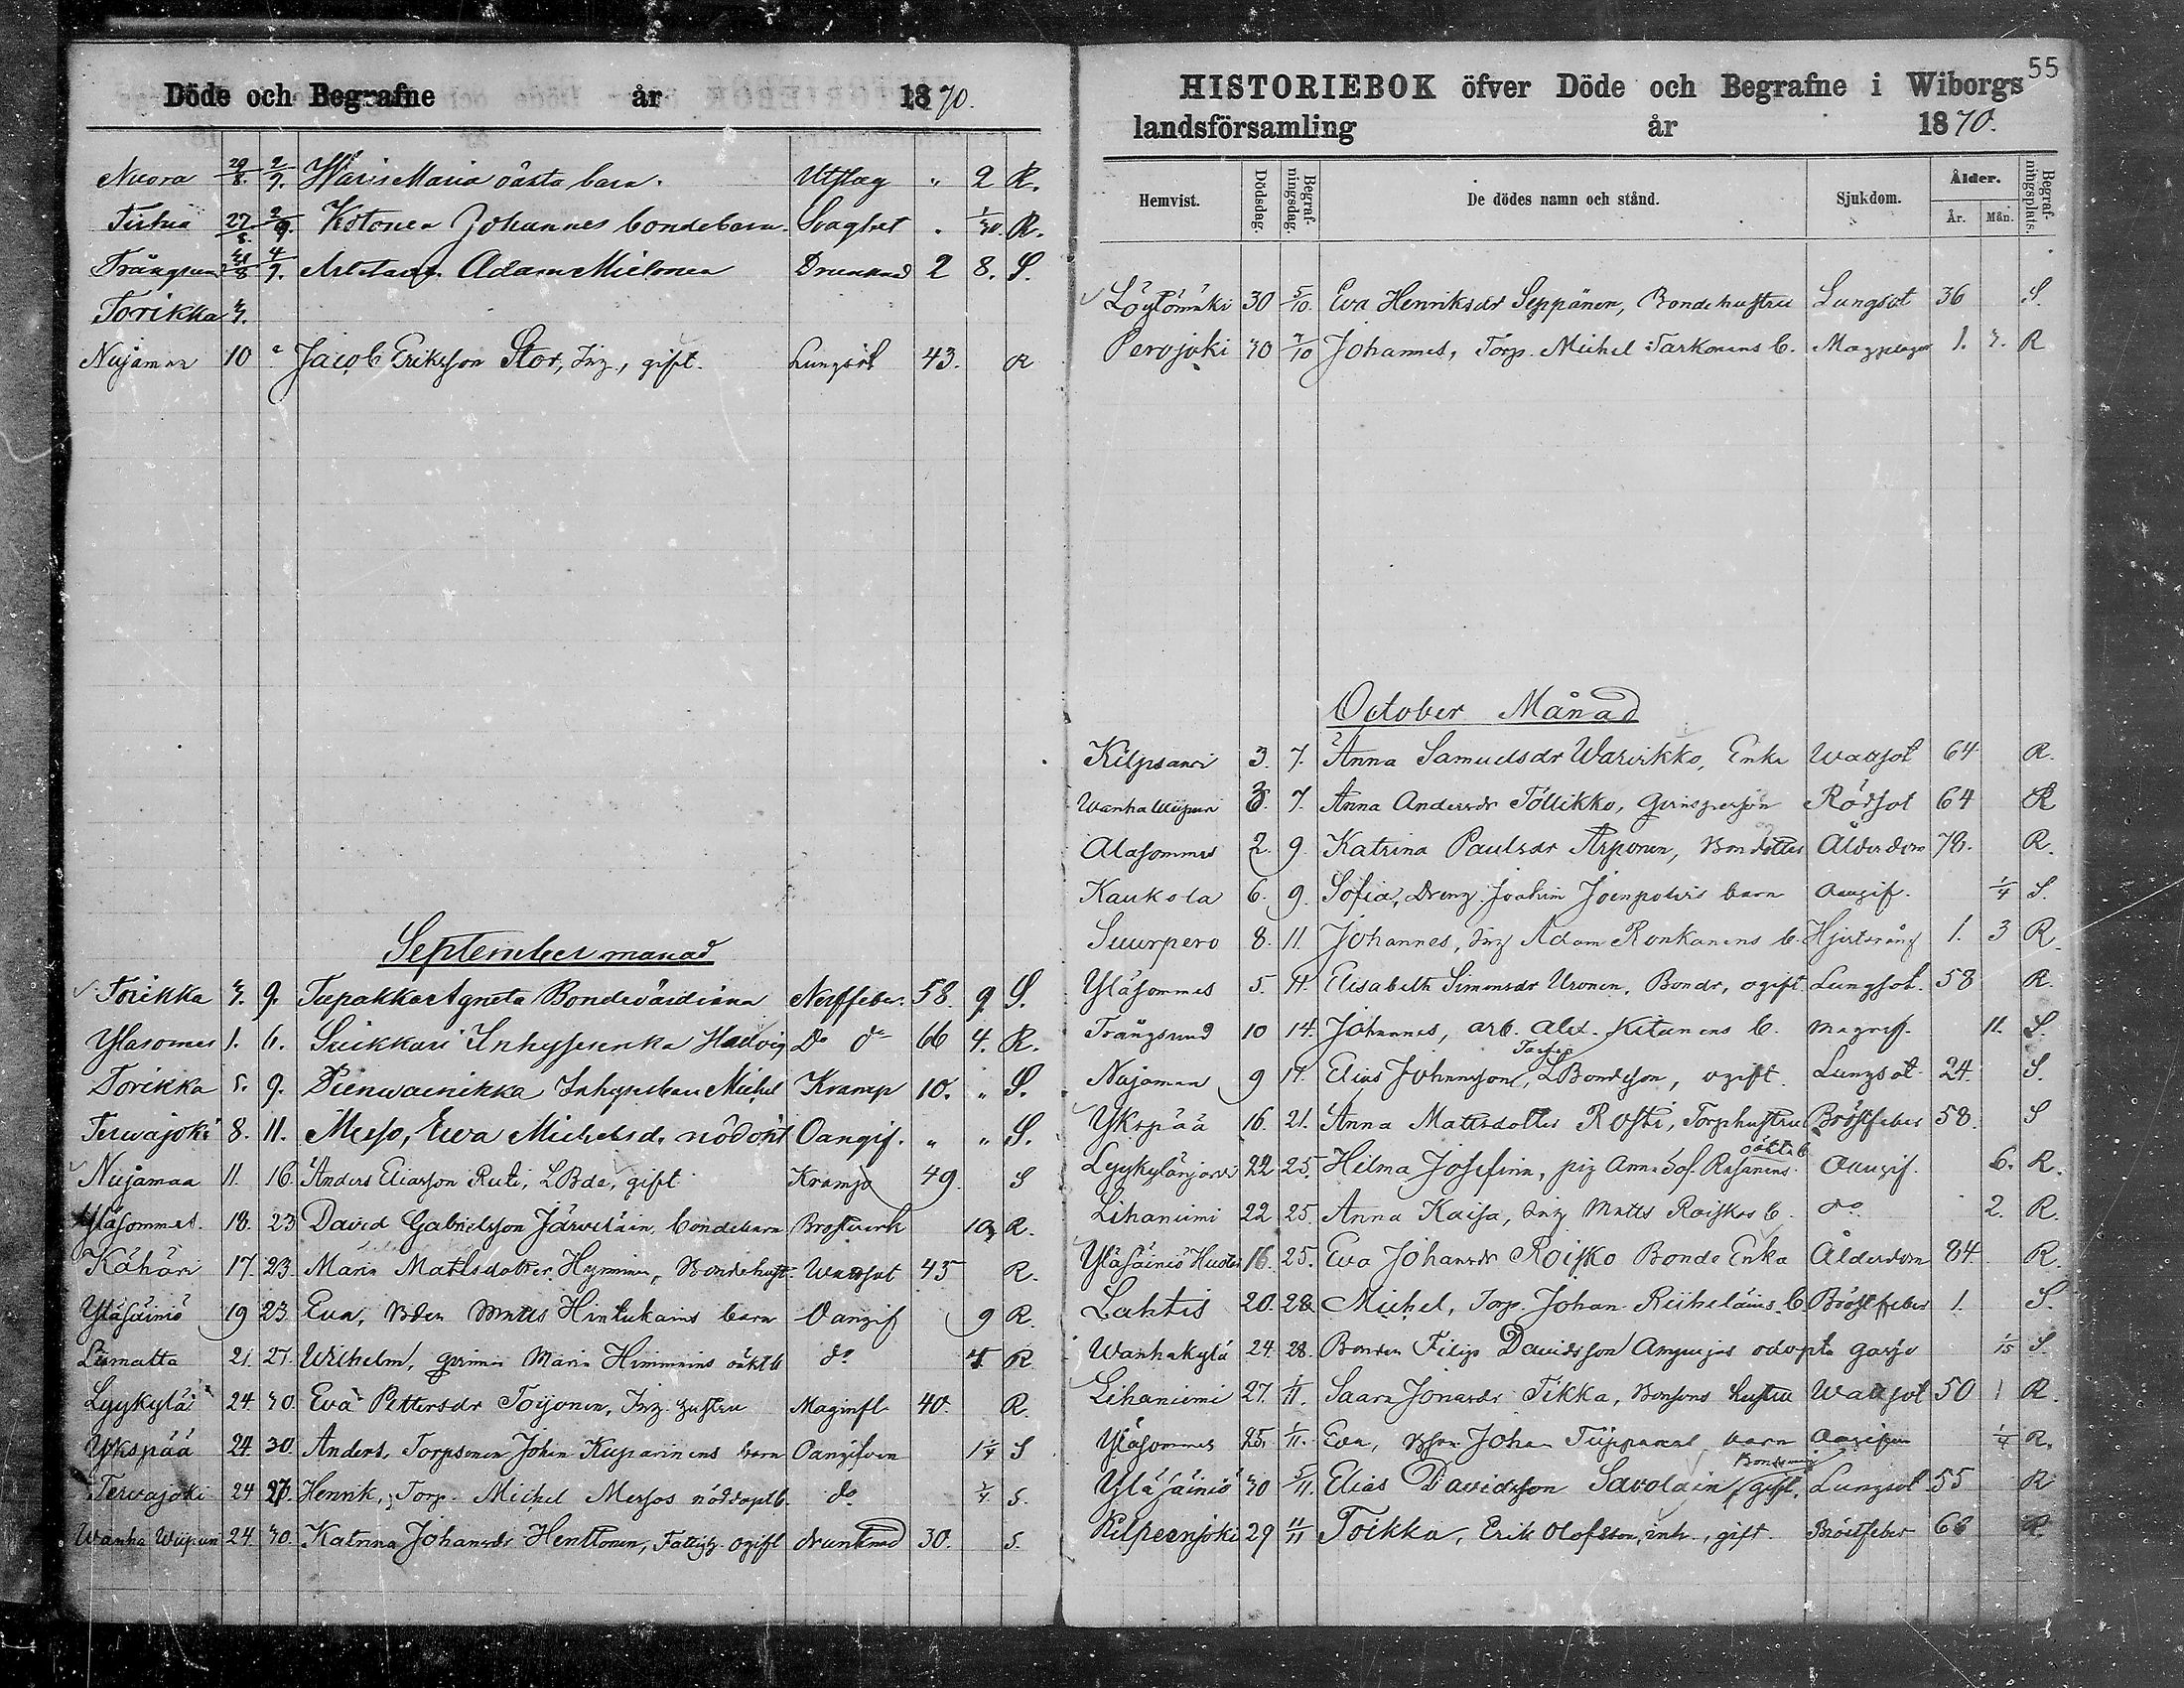 Döde och Begrafne år 1870.
Nuora 29/8. 2/9. Maria oäkta barn. Utslag " 2 R.
27/8. 2/9. Kotonen Johannes bondebarn. Svaghet " 1/30. R.
Trångsund 31/8 4/9. Adam Mielonen Drunknad 2 8. S.
Torikka 3.
Nujamaa 10 Jacob Eriksson Stor, Inh, gift. Lungsot 43. R
September manad
Torikka 3. 9. Agneta Nerffeber. 58. 9. S.
Yläsomes 1. 6. Suikkari Hedvig Do do 66 4. R.
Torikka 5. 9. Michel Kramp 10. " S.
Terwajoki 8. 11. Messo, Ewa Michelsd. nöddöpt Oangif. " " S.
Nujamaa 11. 16. Anders Eliasson Ruti, LBde, gift Kramp 49. S
Yläsommes. 18. 23 David Gabrielsson Järveläin, bondebarn Brostverk 10 R.
Kähäri 17. 23. Maria Mattsdotter Hyminen, Bondehust. Wattsot 45 R.
Yläsäiniö 19 23. Eva, Bden Matts Hinlukains barn Oangif 9 R.
Liimatta 21. 27. Wilhelm, Maria Himmains oäkta b do R.
Lyykylä 24. 30. Eva Pettersdr Toijonen, Inh. hustru Maginfl. 40. R.
Ykspää 24. 30. Anders, Torpmannen Johan Kuparinens barn Oangifven 1 1/4 S
Terwajoki 24 Henrik, Torp. Michel Messos nöddöptb. do 1/4 S.
Wanha Wiipuri 24. 30. Katrina Johansdr Henttonen, Fattigh. ogift drunknad 30. S.
55
HISTORIEBOK öfver Döde och Begrafne i Wiborgs
landsförsamling år 1870.
Hemvist. Dödsdag. Begrafningsdag. De dödes namn och stånd. Sjukdom. Ålder. År. Mån. Begrafningsplats.
Löytömäki 30 5/10. Eva Henriksdr Seppänen, Bondehustru Lungsot 36 S.
Perojoki 30 7/10 Johannes, Torp. Michel Tarkonens b. Magplågor 1. 3. R
October Månad
Kilpsaari 3. 7. Anna Samuelsdr Warvikko, Enka Wattsot 64 R.
Wanha Wiipuri 3. 7. Anna Andersdr Töllikko, Rödsot 64 R
Alasommes 2. 9. Katrina Paulsdr Arponen, Bondotter Ålderdom 78. R.
Kaukola 6. 9. Sofia, Dreng. Joakim Joenpolvis barn Oangif. 1/4 S.
Suurpero 8. 11. Johannes, Inh Adam Ronkanens b. 1. 3 R.
Yläsommes 5. 11. Elisabeth Simonsdr Uronen, Bondr, ogift Lungsot. 58 R.
Trångsund 10 14. Johannes, arb. Alex. Kitunens b. 11. S.
Nujamaa 9 17. Elias Johansson, LBondeson, ogift. Lungsot 24. S.
Ykspää 16. 21. Anna Mattsdotter Rosti, Torphustru Bröstfeber 58. S
Lyykylänjärvi 22 25. Hilma Josefina, pig Anna Sof. Rasanens. oäkta b Oangif. 6. R.
Lihaniemi 22 25. Anna Kaisa, Inh Matts Roiskos b. do 2. R.
Yläsäiniö 16. 25. Eva Johansdr Roisko Bonde Enka Ålderdom 84. R.
Lahtis 20. 28 Michel, Torp. Johan Riiheläins. b. Bröstfeber 1. S.
Wanhakylä 24. 28. Bonden Filip Davidsson Ampujas odöpta gosse 1/15 S.
Lihaniemi 27. 1/11. Saara Jonasdr Tikka, Bonsons hustru Wattsot 50 1 R.
Yläsommes 25. 1/11. Eva, Johan barn Oangifven 1/4 R.
Yläsäiniö 30 5/11. Elias Davidsson Savolain gift. Lungsot 55 R
Kilpeenjoki 29 11/11 Toikka, Erik Olofsson, inh., gift. Bröstfeber 66 R.